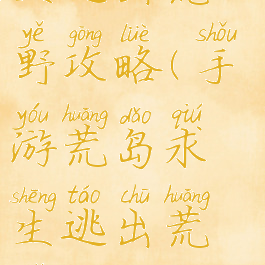 yě gōng lüè shǒu
野攻略(手
yóu huāng dǎo qiú
游荒岛求
shēng táo chū huāng
生逃出荒